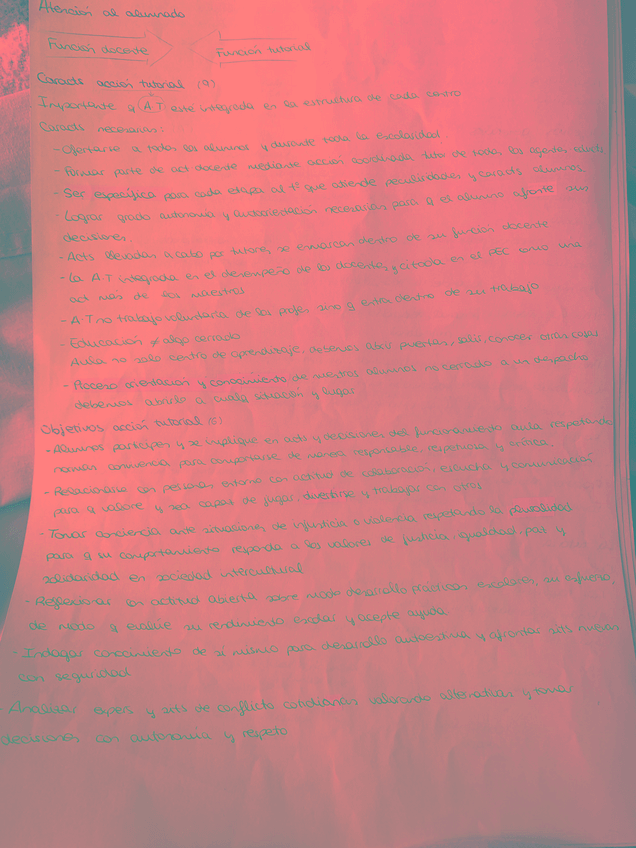 Atención al alumnado
Función docente Función tutorial
Caracts acción tutorial (9)
Importante q A.T. esté integrada en la estructura de cada centro
Caracts necesarias:
- Ofertarse a todos los alumnos y durante toda la escolaridad.
- Formar parte de act docente mediante acción coordinada tutor de todos los agentes
- Ser específica para cada etapa al tº que atiende peculiaridades y caracts alumnos
- Lograr grado autonomía y autoorientación necesarias para q el alumno afronte sus
decisiones.
- Acts llevadas a cabo por tutores, se enmarcan dentro de su función docente
- La A.T integrada en el desempeño de los docentes y citada en el PEC como una
act más de los maestros
- A.T no trabajo voluntario de los profes, sino q entra dentro de su trabajo
- Educación ≠ algo cerrado
Aula no solo centro de aprendizaje, debemos abrir puertas, salir, conocer otras cosas
- Proceso orientación y conocimiento de nuestros alumnos no cerrado a un despacho
debemos abrirlo a cualq situación y lugar
Objetivos acción tutorial (6)
- Alumnos participen y se implique en acts y decisiones del funcionamiento aula respetando
normas convivencia para comportarse de manera responsable, respetuosa y crítica.
- Relacionarse con personas entorno con actitud de colaboración, escucha y comunicación
para q valore y sea capaz de jugar, divertirse y trabajar con otros
- Tomar conciencia ante situaciones de injusticia o violencia respetando la pluralidad
para q su comportamiento responda a los valores de justicia, igualdad, paz y
solidaridad en sociedad intercultural
- Reflexionar con actitud abierta sobre modo desarrollo prácticas escolares, su esfuerzo,
de modo q evalúe su rendimiento escolar y acepte ayuda
- Indagar conocimiento de sí mismo para desarrollo autoestima y afrontar sits nuevas
con seguridad
- Analizar expers y sits de conflicto cotidianas valorando alternativas y tomar
decisiones con autonomía y respeto